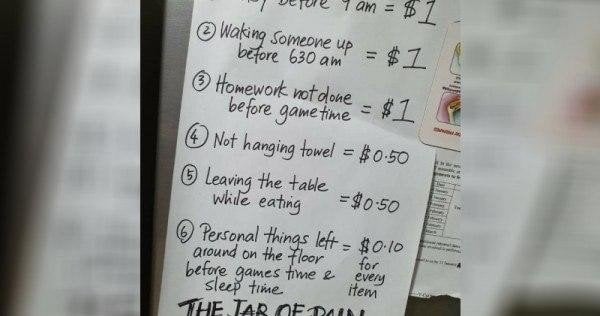 before 9 am = $1
② Waking someone up
before 630 am = $1
③ Homework not done
before game time = $1
④ Not hanging towel = $0.50
⑤ Leaving the table
while eating = $0.50
⑥ Personal things left = $0.10
around on the floor for
before games time & every
sleep time item
THE JAR OF PAIN